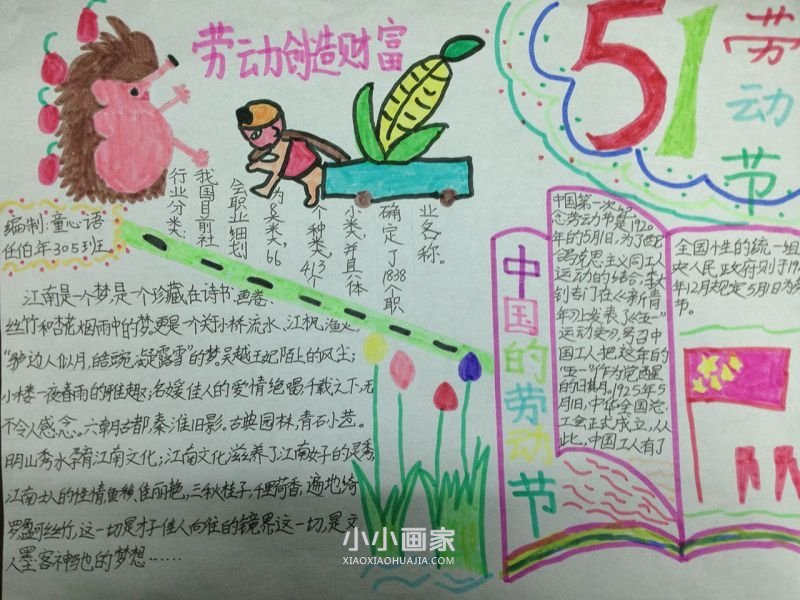 劳动创造财富
51
劳动节
编制:童心语
任伯年305班
行业分类:
我国目前社
会职业细划
为8大类,66
个种类,413
小类并且具体
确定了1838个职
业名称。
江南是一个梦,是一个珍藏在诗书
丝竹和杏花烟雨中的梦,更是一个关于小桥流水、江枫渔火,
“垆边人似月,皓腕凝露雪”的梦。吴越王妃陌上的风尘;
小楼一夜春雨的雅趣;名媛佳人的爱情绝唱,千载之下,无
不令人感念。六朝古都,秦淮旧影。古典园林,青石小巷。
明山秀水孕育江南文化;江南文化滋养了江南女子的灵秀,
江南士人的性情
三秋桂子,十里荷香,遍地绮
罗,盈耳丝竹,这一切是才子佳人向往的镜界这一切,是文
人墨客神驰的梦想……
中国的劳动节
中国第一次纪
念劳动节是1920
年的5月1日,为了
马克思主义同工人
运动的结合,李大
钊专门在《新青
年》上发表了《“五一”
运动史》,号召中
国工人把这年的
“五一”作为觉醒
的日期,1925年5
月1日,中华全国总
工会正式成立,从
此,中国工人有了
全国性的统一组
央人民政府则于19
年12月规定5月1日为
节。
小小画家
XIAOXIAOHUAJIA.COM